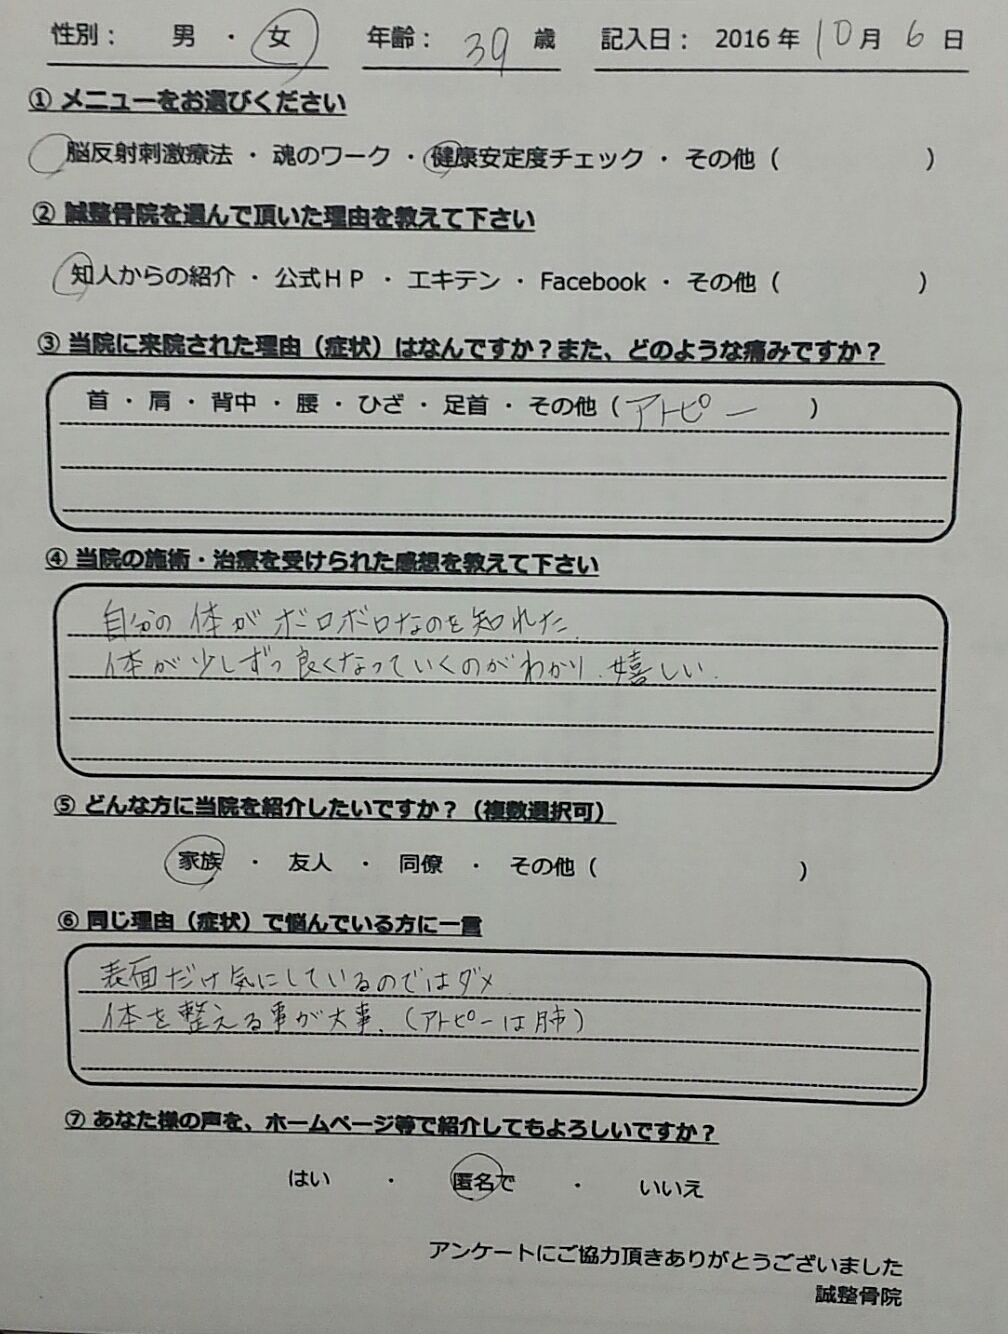 性別： 男 ・ 女 年齢： 39 歳 記入日： 2016 年 10 月 6 日
① メニューをお選びください
脳反射刺激療法 ・ 魂のワーク ・ 健康安定度チェック ・ その他（ ）
② 誠整骨院を選んで頂いた理由を教えて下さい
知人からの紹介 ・ 公式ＨＰ ・ エキテン ・ Facebook ・ その他（ ）
③ 当院に来院された理由（症状）はなんですか？また、どのような痛みですか？
首 ・ 肩 ・ 背中 ・ 腰 ・ ひざ ・ 足首 ・ その他（ アトピー ）
④ 当院の施術・治療を受けられた感想を教えて下さい
自分の体がボロボロなのを知れた.
体が少しずつ良くなっていくのがわかり、嬉しい.
⑤ どんな方に当院を紹介したいですか？（複数選択可）
家族 ・ 友人 ・ 同僚 ・ その他（ ）
⑥ 同じ理由（症状）で悩んでいる方に一言
表面だけ気にしているのではダメ.
体を整える事が大事.（アトピーは肺）
⑦ あなた様の声を、ホームページ等で紹介してもよろしいですか？
はい ・ 匿名で ・ いいえ
アンケートにご協力頂きありがとうございました
誠整骨院